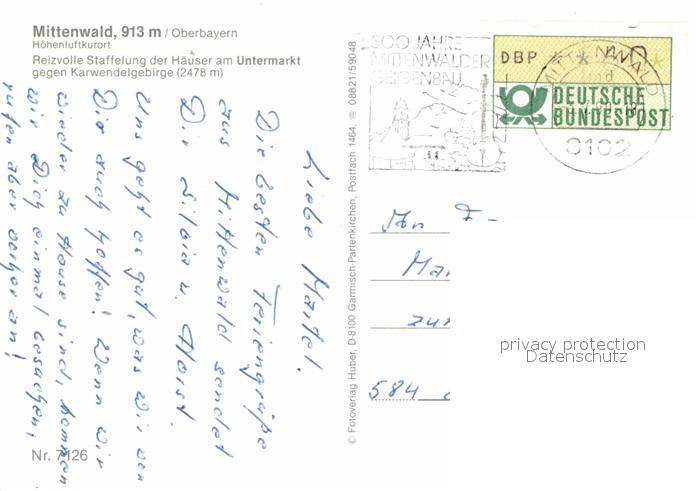 Mittenwald, 913 m / Oberbayern
Höhenluftkurort
Reizvolle Staffelung der Häuser am Untermarkt
gegen Karwendelgebirge (2478 m)
Liebe Martel.
Die besten Feriengrüße
aus Mittenwald sendet
Dir Silvia u. Horst.
Uns geht es gut, was wir von
Dir auch hoffen! Wenn wir
wieder zu Hause sind, kommen
wir Dich einmal besuchen,
rufen aber vorher an!
Nr. 7126
© Fotoverlag Huber, D-8100 Garmisch-Partenkirchen, Postfach 1464, ☎ 08821/59048
300 JAHRE
MITTENWALDER
GEIGENBAU
DBP
DEUTSCHE
BUNDESPOST
MITTENWALD
8102
An F
Ma
zur
584
privacy protection
Datenschutz